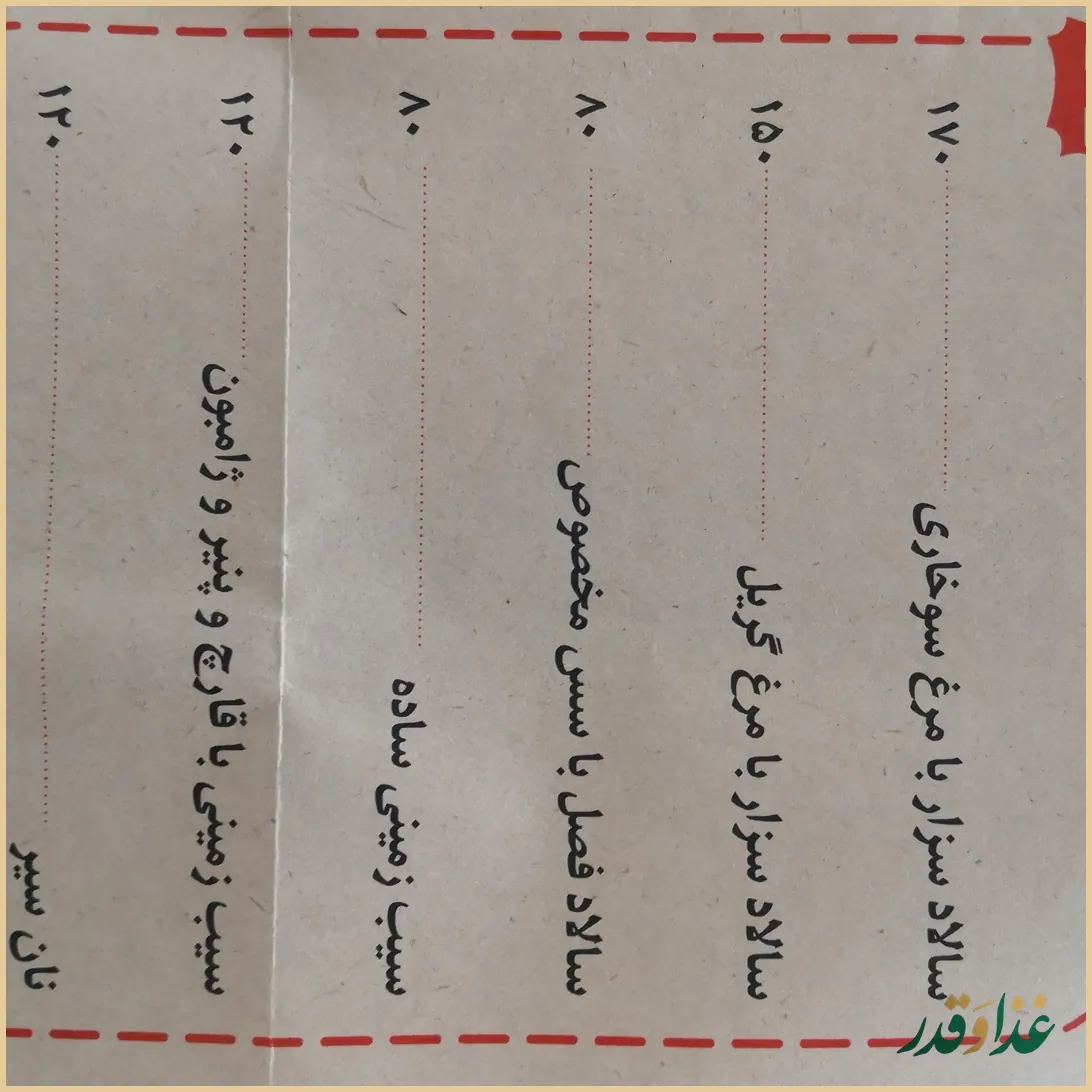 سالاد سزار با مرغ سوخاری ۱۷۰
سالاد سزار با مرغ گریل ۱۵۰
سالاد فصل با سس مخصوص ۸۰
سیب زمینی ساده ۸۰
سیب زمینی با قارچ و پنیر و ژامبون ۱۲۰
نان سیر ۱۲۰
غذا وَ قدر